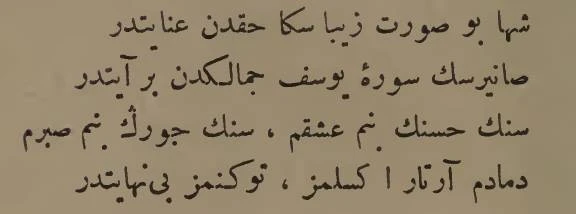 شها بو صورت زيبا سكا حقدن عنايتدر
صانيرسك سورۀ يوسف جمالكدن بر آيتدر
سنك حسنك بنم عشقم ، سنك جورڭ بنم صبرم
دمادم آرتار ا كسلمز ، توكنمز بى‌نهايتدر